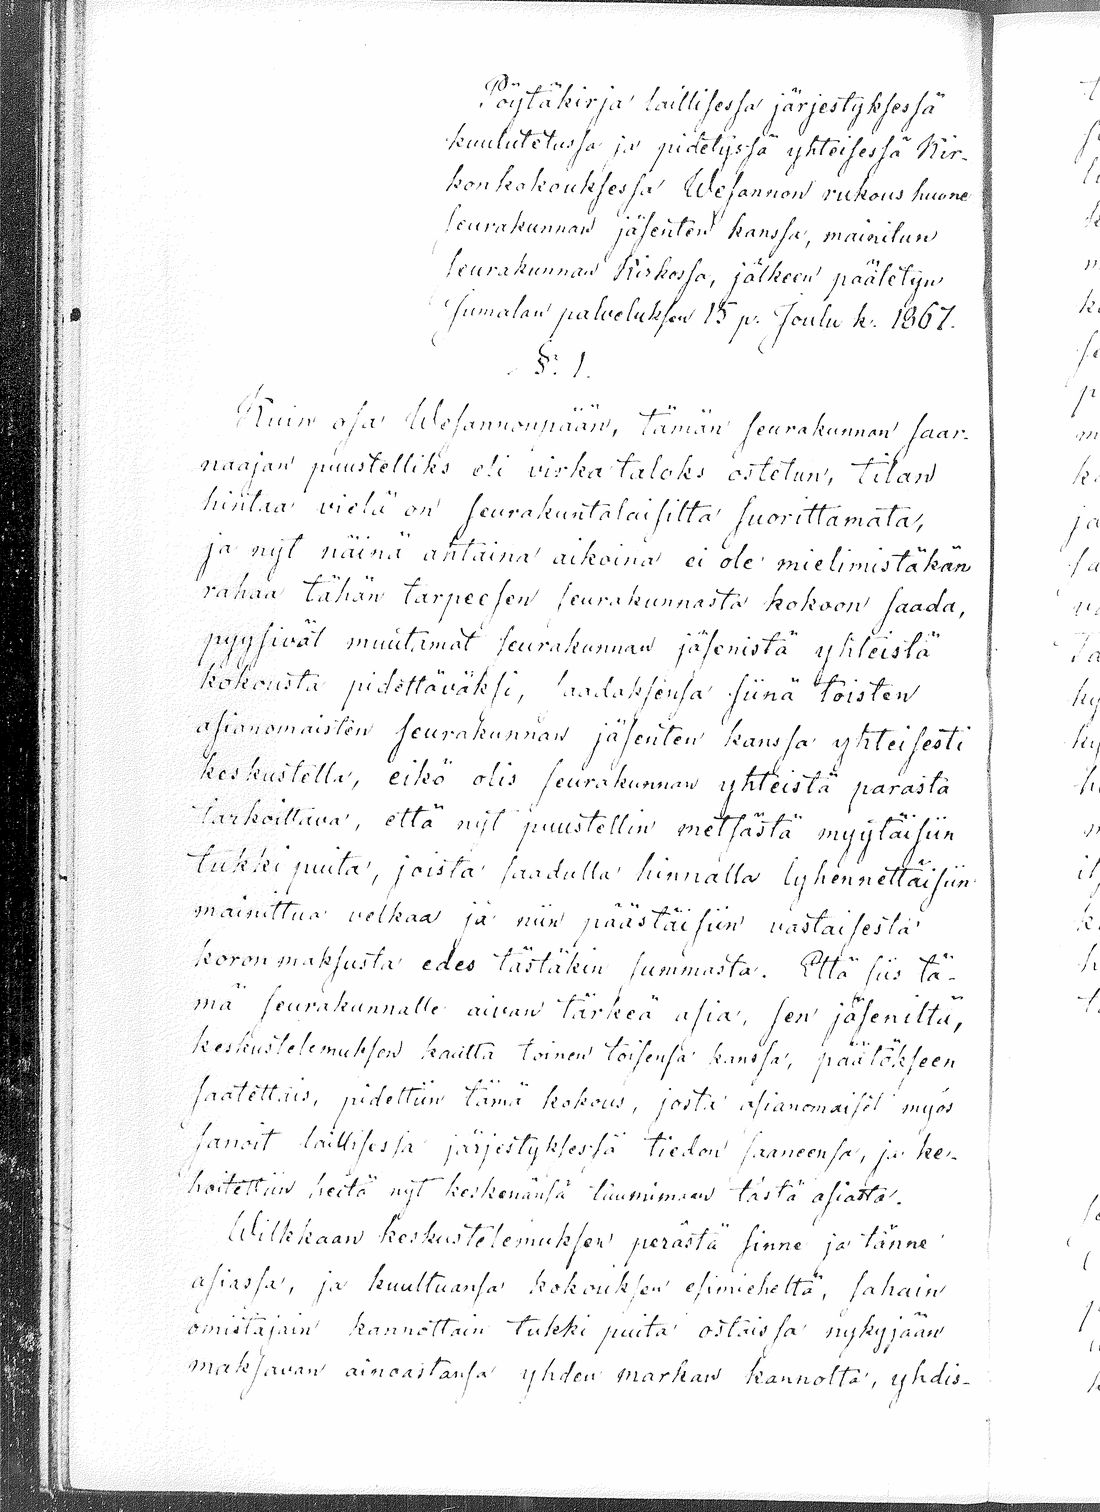 Pöytäkirja laillisessa järjestyksessä
kuulutetussa ja pidetyssä yhteisessä Kir-
konkokouksessa Wesannon rukous huone
seurakunnan jäsenten kanssa, mainitun
seurakunnan Kirkossa, jälkeen päätetyn
Jumalan palveluksen 15 p. Joulu k. 1867.
§: 1.
Kuin osa Wesannonpään, tämän seurakunnan saar-
naajan puustelliks eli virka taloks ostetun, tilan
hintaa vielä on seurakuntalaisilta suorittamata,
ja nyt näinä ahtaina aikoina ei ole mielimistäkän
rahaa tähän tarpeesen seurakunnasta kokoon saada,
pyysivät muutamat seurakunnan jäsenistä yhteistä
kokousta pidettäväksi, saadaksensa siinä toisten
asianomaisten seurakunnan jäsenten kanssa yhteisesti
keskustella, eikö olis seurakunnan yhteistä parasta
tarkoittava, että nyt puustellin metsästä myytäisiin
tukki puita, joista saadulla hinnalla lyhennettäisiin
mainittua velkaa ja niin päästäisiin vastaisesta
koron maksusta edes tästäkin summasta. Että siis tä-
mä seurakunnalle aivan tärkeä asia, sen jäseniltä,
keskustelemuksen kautta toinen toisensa kanssa, päätökseen
saatettais, pidettiin tämä kokous, josta asianomaiset myös
sanoit laillisessa järjestyksessä tiedon saaneensa, ja ke-
hoitettiin heitä nyt keskenänsä tuumimaan tästä asiasta.
Wilkkaan keskustelemuksen perästä sinne ja tänne
asiassa, ja kuultuansa kokouksen esimieheltä, sahain
omistajain kannottain tukki puita ostaissa nykyjään
maksavan ainoastansa yhden markan kannolta, yhdis-